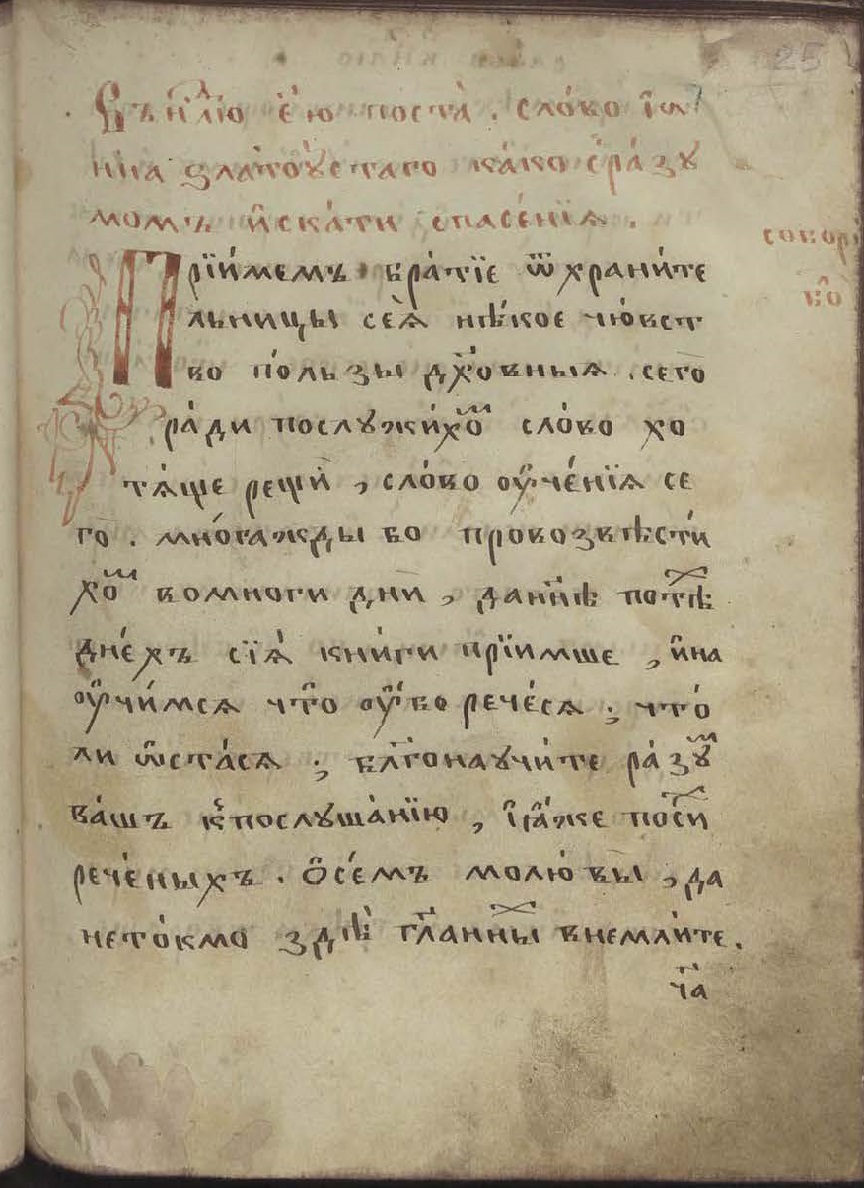 25
Въ н҃лю є҃ю поста̀ . сло́во і҆ѡ҃
нна златоу́стаго ка́ко с̾ра́зу
момъ и҆ска́ти спасе́нїѧ .
собори
во̑
Прїи́мемъ бра́тїе ѿ храни́те
льницы сеѧ̀ нѣ́кое чю́вст
во по́льзы дх҃о́вныѧ . сего̀
ра́ди послужи́хоⷨ сло́во хо
тѧ́ще рещѝ , сло́во оу҆че́нїѧ се
го̀ . мно́гажды бо провозвѣсти́
хоⷨ вомноги дни̑ , даннѣ потѣⷯ
дне́хъ сїѧ̀ кни́ги прїимше , и҆на
оу҆чи́мсѧ что̀ оу҆́бо рече́сѧ ; что́
ли ѡ҆ста́сѧ ; бл҃гонаучи́те ра́зуⷨ
ва́шъ к̾послуша́нїю , і҆ꙗ҆́же посиⷯ
рече́ныхъ . О҆се́мъ молю́ вы̀ , да
нето́кмо здѣ̀ гл҃анныⷯ внемли́те .
ча̑